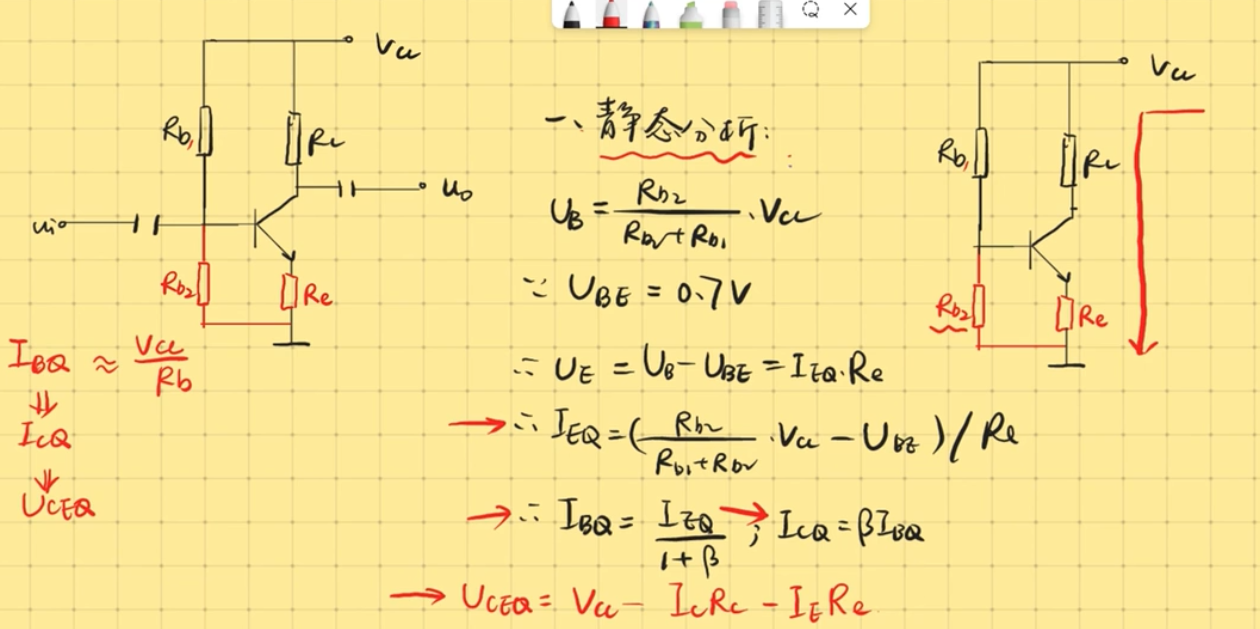 Vcc
Rb1
Rc
uo
ui
Rb2
Re
IBQ ≈ Vcc / Rb
⇓
ICQ
⇓
UCEQ
一、静态分析:
UB = Rb2 / (Rb2 + Rb1) · Vcc
∵ UBE = 0.7V
∴ UE = UB - UBE = IEQ·Re
→ ∴ IEQ = (Rb2 / (Rb1 + Rb2) · Vcc - UBE) / Re
→ ∴ IBQ = IEQ / (1 + β) ; → ICQ = βIBQ
→ UCEQ = Vcc - IcRc - IERe
Vcc
Rb1
Rc
Rb2
Re